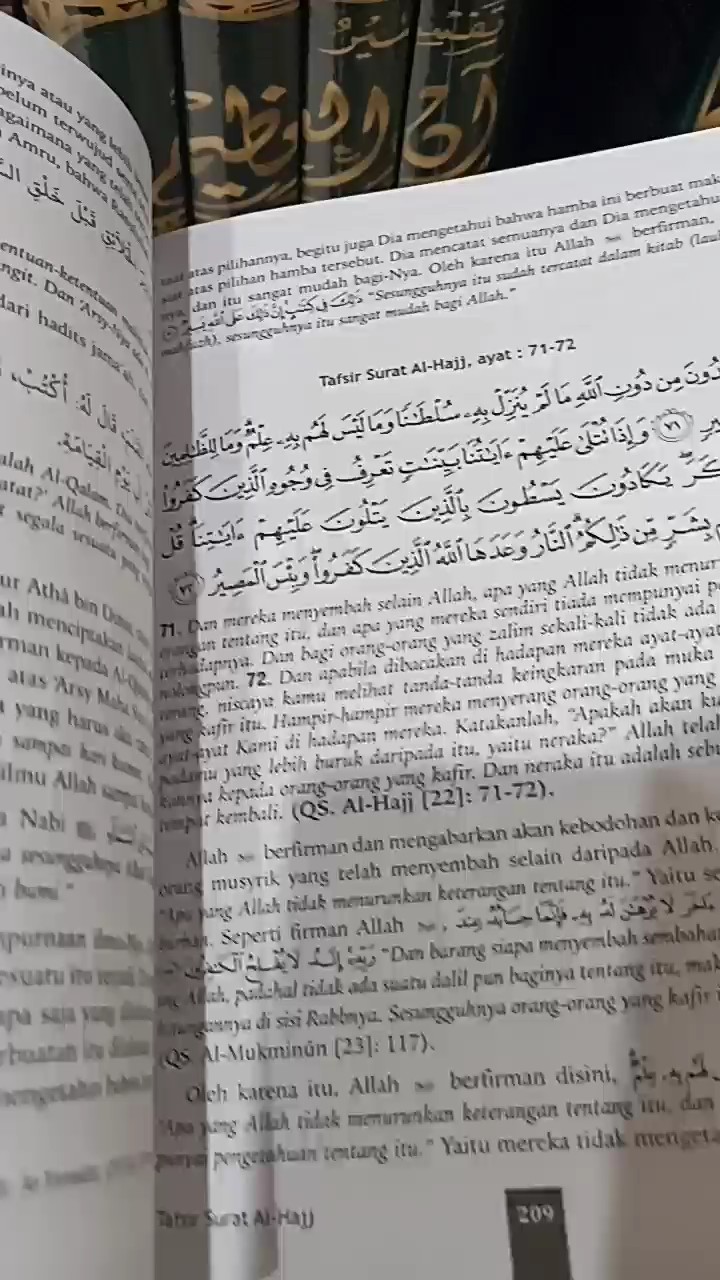 تفسير
آن العظيم
inya atau yang lebih
belum terwujud
bagaimana yang telah
Amru, bahwa
قَبْلَ خَلْقِ
entuan-ketentuan
ngit. Dan 'Arsy-Nya
dari hadits jama'ah
قَالَ لَهُ: أَكْتُبْ،
يَوْمِ الْقِيَامَةِ.
alah Al-Qalam.
atat?' Allah berfirman
segala sesuatu yang
ur Athá bin
ah menciptakan
rman kepada Al-
atas 'Arsy Maha
yang harus
sampai hari
ilmu Allah
Nabi
a sesungguhnya
bumi."
mpurnaan
esuatu itu
apa saja yang
rbuatan itu
mengetahui
atas pilihannya, begitu juga Dia mengetahui bahwa hamba ini berbuat mak
atas pilihan hamba tersebut. Dia mencatat semuanya dan Dia mengetahu
nya, dan itu sangat mudah bagi-Nya. Oleh karena itu Allah berfirman,
"Sesungguhnya itu sudah tercatat dalam kitab (lauh
mahfuzh), sesungguhnya itu sangat mudah bagi Allah."
Tafsir Surat Al-Hajj, ayat : 71-72
دُونَ مِن دُونِ ٱللَّهِ مَا لَمْ يُنَزِّلْ بِهِۦ سُلْطَـٰنًا وَمَا لَيْسَ لَهُم بِهِۦ عِلْمٌ وَمَا لِلظَّـٰلِمِينَ
يرٍ ٧١ وَإِذَا تُتْلَىٰ عَلَيْهِمْ ءَايَـٰتُنَا بَيِّنَـٰتٍ تَعْرِفُ فِى وُجُوهِ ٱلَّذِينَ كَفَرُوا۟
كَرَ يَكَادُونَ يَسْطُونَ بِٱلَّذِينَ يَتْلُونَ عَلَيْهِمْ ءَايَـٰتِنَا قُلْ
بِشَرٍّ مِّن ذَٰلِكُمُ ٱلنَّارُ وَعَدَهَا ٱللَّهُ ٱلَّذِينَ كَفَرُوا۟ وَبِئْسَ ٱلْمَصِيرُ ٧٢
71. Dan mereka menyembah selain Allah, apa yang Allah tidak menur
erangan tentang itu, dan apa yang mereka sendiri tiada mempunyai pe
terhadapnya. Dan bagi orang-orang yang zalim sekali-kali tidak ada
nolongpun. 72. Dan apabila dibacakan di hadapan mereka ayat-ayat
terang, niscaya kamu melihat tanda-tanda keingkaran pada muka
yang kafir itu. Hampir-hampir mereka menyerang orang-orang yang
ayat-ayat Kami di hadapan mereka. Katakanlah, "Apakah akan ku
padamu yang lebih buruk daripada itu, yaitu neraka?" Allah telah
kannya kepada orang-orang yang kafir. Dan neraka itu adalah sebu
tempat kembali. (QS. Al-Hajj [22]: 71-72).
Allah berfirman dan mengabarkan akan kebodohan dan ke
orang musyrik yang telah menyembah selain daripada Allah.
"Apa yang Allah tidak menurunkan keterangan tentang itu." Yaitu se
burhan. Seperti firman Allah
"Dan barang siapa menyembah sembahan
Allah, padahal tidak ada suatu dalil pun baginya tentang itu, mak
tungannya di sisi Rabbnya. Sesungguhnya orang-orang yang kafir i
(QS. Al-Mukminún [23]: 117).
Oleh karena itu, Allah berfirman disini,
'Apa yang Allah tidak menurunkan keterangan tentang itu, dan
punyai pengetahuan tentang itu." Yaitu mereka tidak mengeta
Tafsir Surat Al-Hajj
209